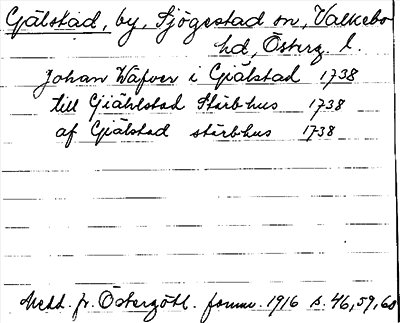 Gjälstad, by, Sjögestad sn, Valkebo
hd, Österg. l.
Johan Wäfver i Giälstad 1738
till Giählstad Stärbhus 1738
af Giälstad stärbhus 1738
Medd. fr. Östergötl. fornm. 1916 s. 46, 59, 60